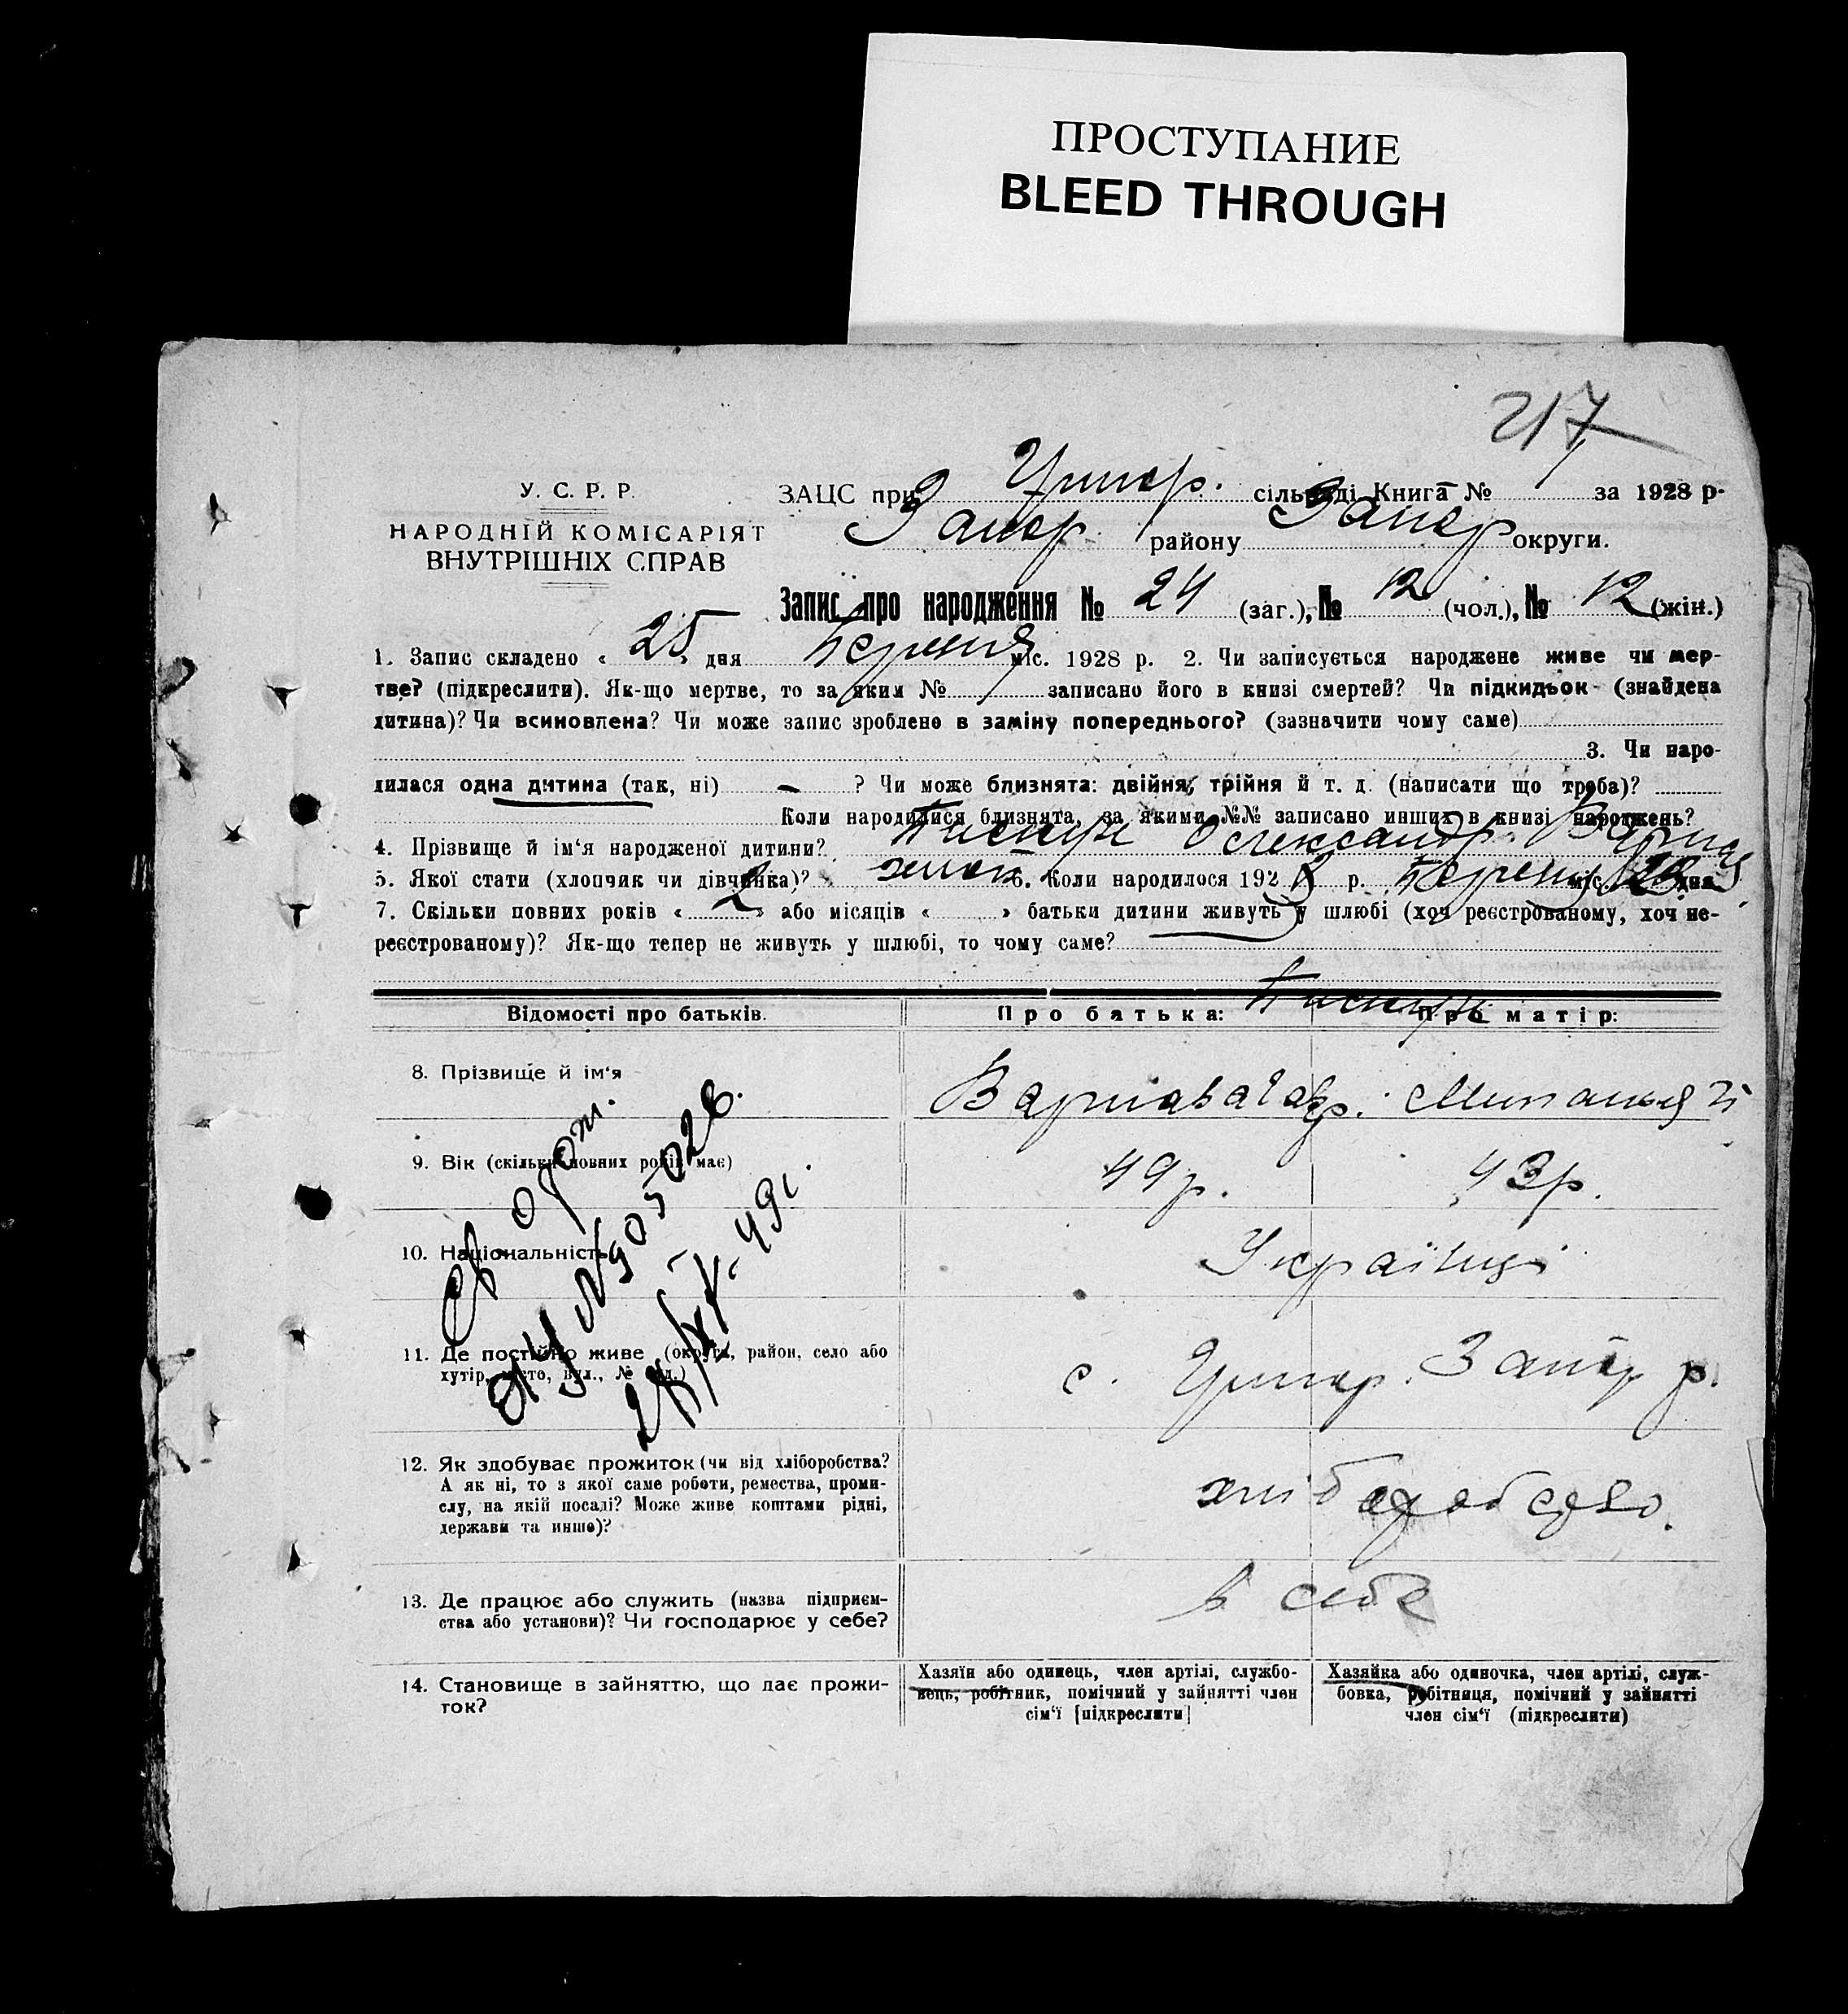 ПРОСТУПАНИЕ
BLEED THROUGH
217
У. С. Р. Р.
НАРОДНІЙ КОМІСАРІЯТ
ВНУТРІШНІХ СПРАВ
ЗАЦС при сільраді Книга № за 1928 р-
Запор району Запор округи.
Запис про народження № 24 (заг.), № 12 (чол.), № 12 (жін.)
1. Запис складено « 25 » дня Березня міс. 1928 р. 2. Чи записується народжене живе чи мер-
тве? (підкреслити). Як-що мертве, то за яким № записано його в книзі смертей? Чи підкидьок (знайдена
дитина)? Чи всиновлена? Чи може запис зроблено в заміну попереднього? (зазначити чому саме)
3. Чи наро-
дилася одна дитина (так, ні) — ? Чи може близнята: двійня, трійня й т. д. (написати що треба)?
Коли народилися близнята, за якими №№ записано инших в книзі народжень?
4. Прізвище й ім‘я народженої дитини? Олександр
5. Якої стати (хлопчик чи дівчинка)? хлоп. 6. Коли народилося 1928 р. Березня міс. 23 дня
7. Скільки повних років « 2 » або місяців « » батьки дитини живуть у шлюбі (хоч реєстрованому, хоч не-
реєстрованому)? Як-що тепер не живуть у шлюбі, то чому саме?
Відомості про батьків. Про батька: Про матір:
8. Прізвище й ім‘я
9. Вік (скільки повних років має) 49р. 43р.
10. Національність Українці
11. Де постійно живе (округа, район, село або
хутір, місто, вул., № буд.)
с. Запор р.
12. Як здобуває прожиток (чи від хліборобства?
А як ні, то з якої саме роботи, ремества, проми-
слу, на якій посаді? Може живе коштами рідні,
держави та инше)?
хліборобство.
13. Де працює або служить (назва підприєм-
ства або установи)? Чи господарює у себе?
в себе
14. Становище в зайняттю, що дає прожи-
ток?
Хазяїн або одинець, член артілі, службо-
вець, робітник, помічний у зайнятті член
сім‘ї [підкреслити]
Хазяйка або одиночка, член артілі, служ-
бовка, робітниця, помічний у зайнятті
член сім‘ї (підкреслити)